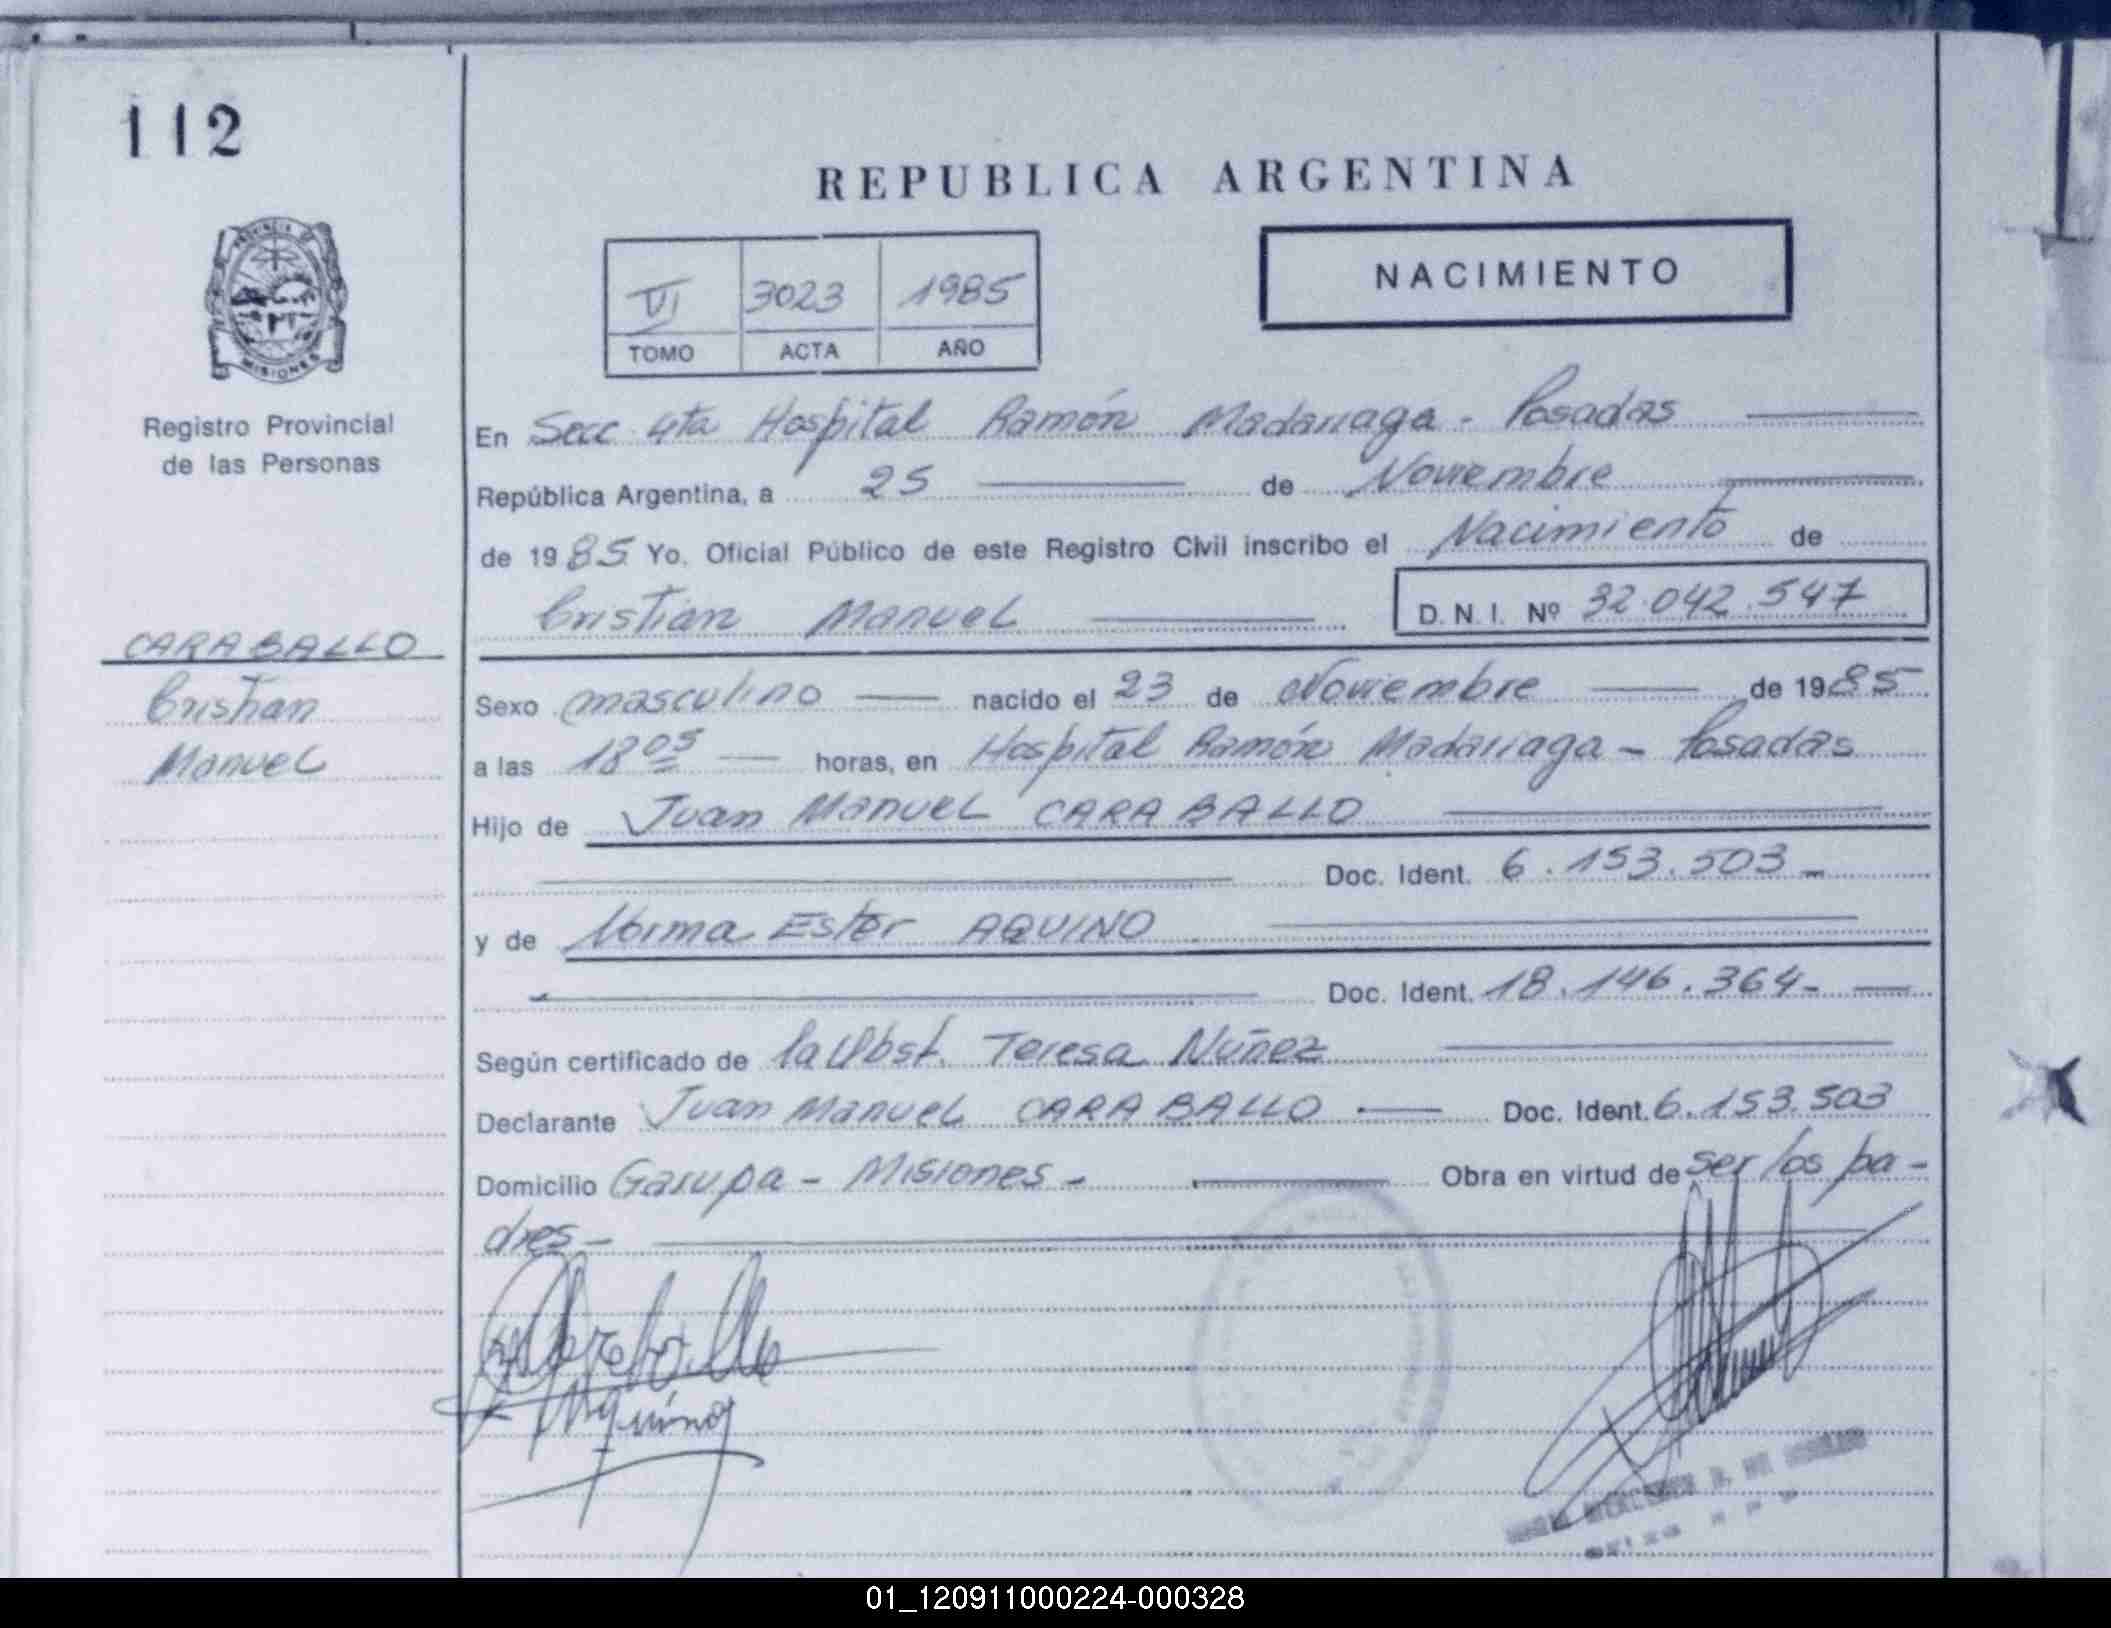 112
REPUBLICA ARGENTINA
PROVINCIA DE
MISIONES
VI 3023 1985
TOMO ACTA AÑO
NACIMIENTO
Registro Provincial
de las Personas
En Secc 4ta Hospital Ramón Madariaga - Posadas
República Argentina, a 25 de Noviembre
de 1985 Yo, Oficial Público de este Registro Civil inscribo el Nacimiento de
Cristian Manuel D. N. I. Nº 32.042.547
CARABALLO
Cristian
Manuel
Sexo masculino nacido el 23 de Noviembre de 1985
a las 18 05 horas, en Hospital Ramón Madariaga - Posadas
Hijo de Juan Manuel CARABALLO
Doc. Ident. 6.153.503 -
y de Norma Ester AQUINO
Doc. Ident. 18.146.364 -
Según certificado de la Obst. Teresa Núñez
Declarante Juan Manuel CARABALLO Doc. Ident. 6.153.503
Domicilio Garupa - Misiones - Obra en virtud de ser los pa-
dres -
Aquino
01_120911000224-000328